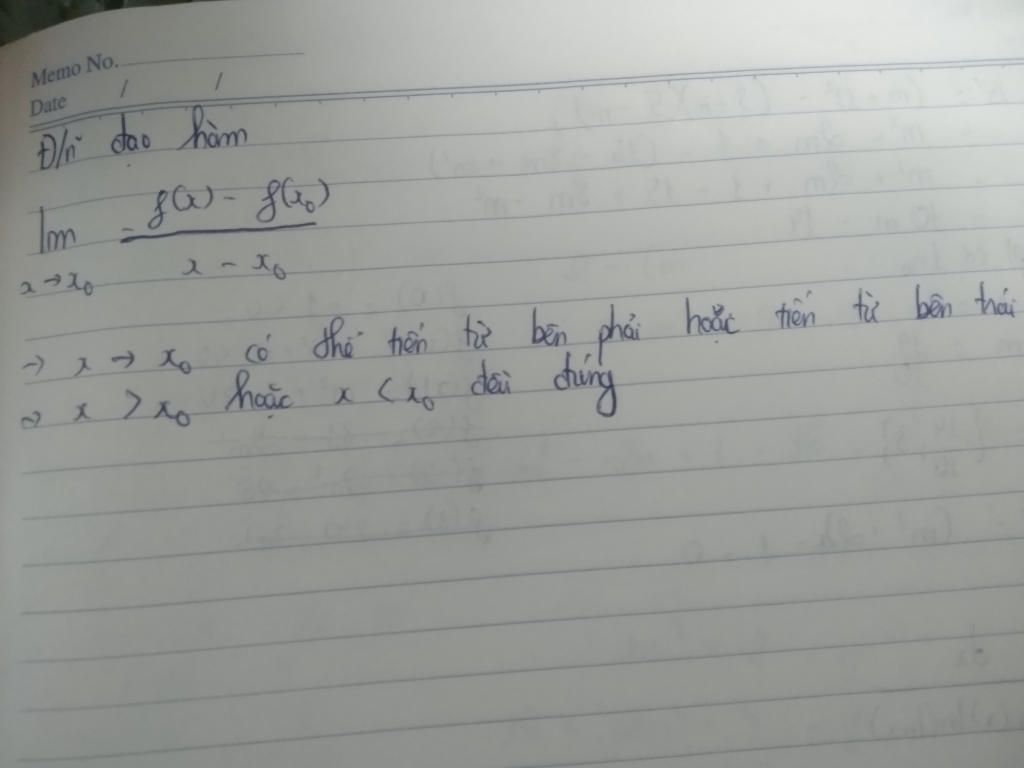 Memo No.
Date / /
Đ/n đạo hàm
lim f(x) - f(x₀)
x→x₀ x - x₀
→ x → x₀ có thể tiến từ bên phải hoặc tiến từ bên trái
→ x > x₀ hoặc x < x₀ đều đúng